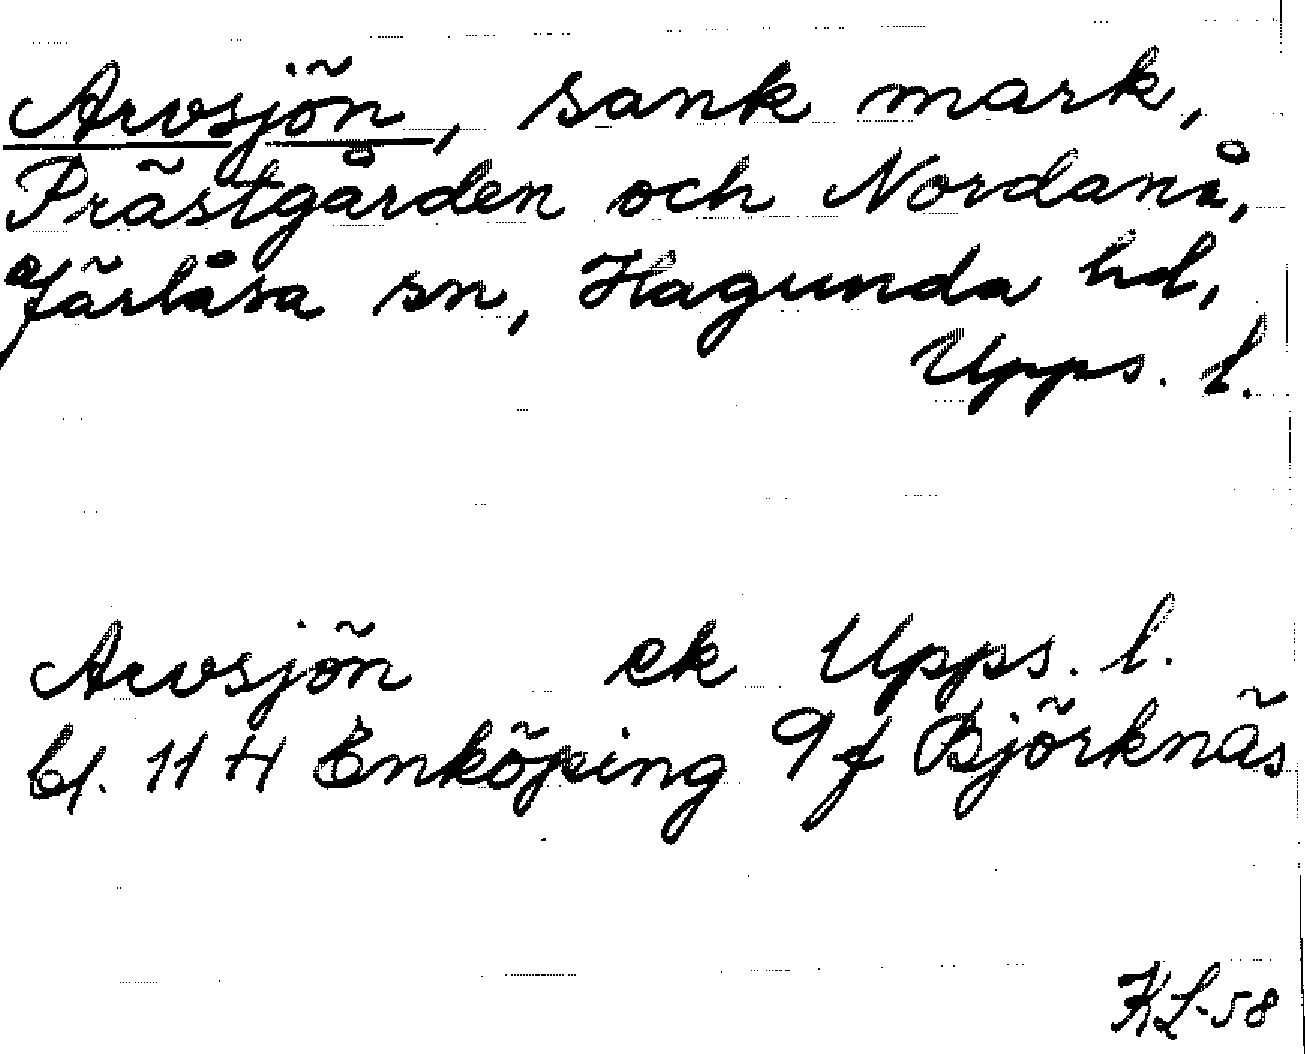 Arvsjön, sank mark,
Prästgården och Nordanå,
Järlåsa sn, Hagunda hd,
Upps. l.
Arvsjön ek Upps. l.
bl. 11 H Enköping 9 f Björknäs
KL-58